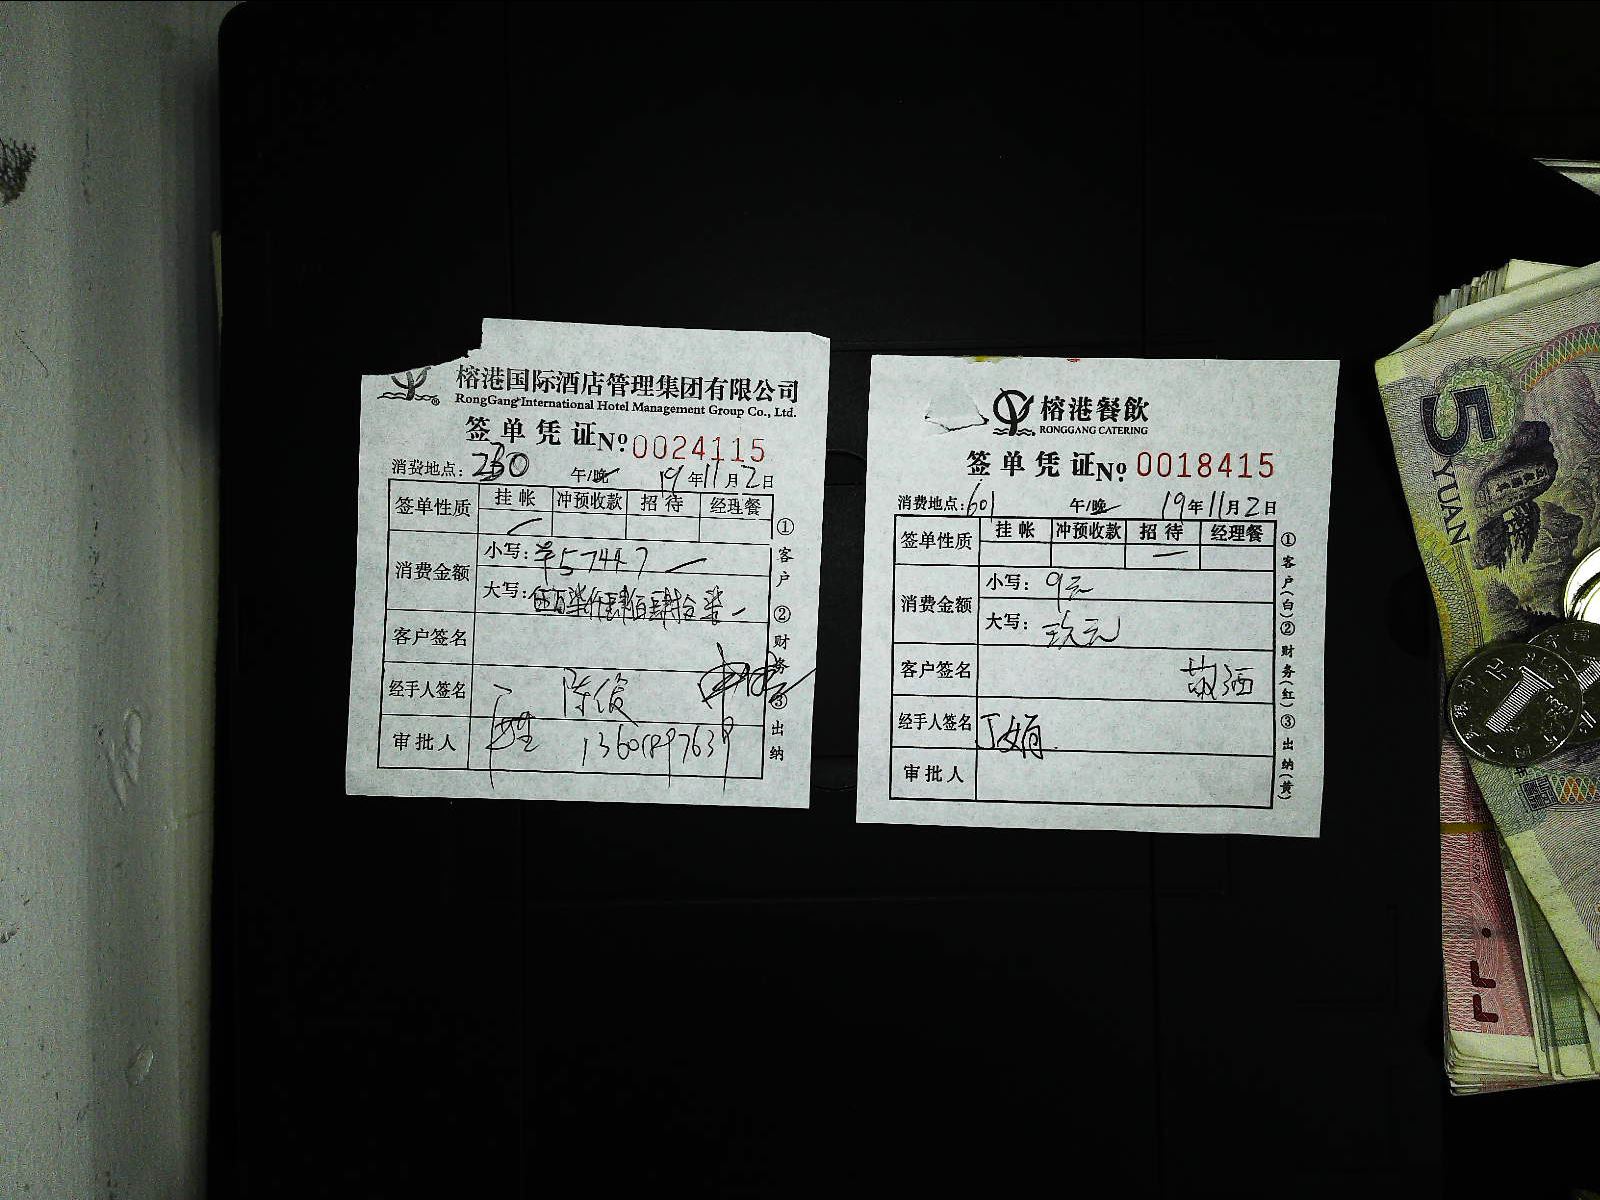 榕港国际酒店管理集团有限公司
RongGang International Hotel Management Group Co., Ltd.
签单凭证 No 0024115
消费地点: 230 午/晚 19年11月2日
签单性质 挂帐 冲预收款 招待 经理餐
消费金额 小写: ¥57447
大写:
客户签名
经手人签名 陈俊
审批人
①客户 ②财务 ③出纳
榕港餐飲
RONGGANG CATERING
签单凭证 No 0018415
消费地点: 601 午/晚 19年11月2日
签单性质 挂帐 冲预收款 招待 经理餐
消费金额 小写: 9元
大写: 玖元
客户签名
经手人签名 丁娟
审批人
①客户(白)②财务(红)③出纳(黄)
5
YUAN
1